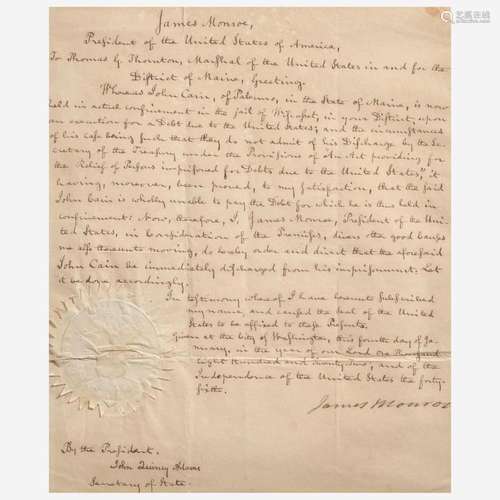 James Monroe,
President of the United States of America,
To Thomas G. Thornton, Marshal of the United States in and for the
District of Maine, Greeting.
Whereas John Cain, of Palermo, in the State of Maine, is now
held in actual confinement in the jail of Wiscasset, in your District, upon
an execution for a Debt due to the United States; and the circumstances
of his case being such that they do not admit of his Discharge by the Se-
cretary of the Treasury under the Provisions of "An Act providing for
the Relief of Persons imprisoned for Debts due to the United States," it
having, moreover, been proved, to my satisfaction, that the said
John Cain is wholly unable to pay the Debt for which he is thus held in
confinement: Now, therefore, I, James Monroe, President of the Uni-
ted States, in Consideration of the Premises, divers other good causes
me also thereunto moving, do hereby order and direct that the aforesaid
John Cain be immediately discharged from his imprisonment. Let
it be done accordingly.
In testimony whereof, I have hereunto subscribed
my name, and caused the seal of the United
States to be affixed to these Presents.
Given at the City of Washington, this fourth day of Ja-
nuary, in the year of our Lord one thousand
eight hundred and twenty two, and of the
Independence of the United States the forty-
sixth.
James Monroe
By the President.
John Quincy Adams
Secretary of State.